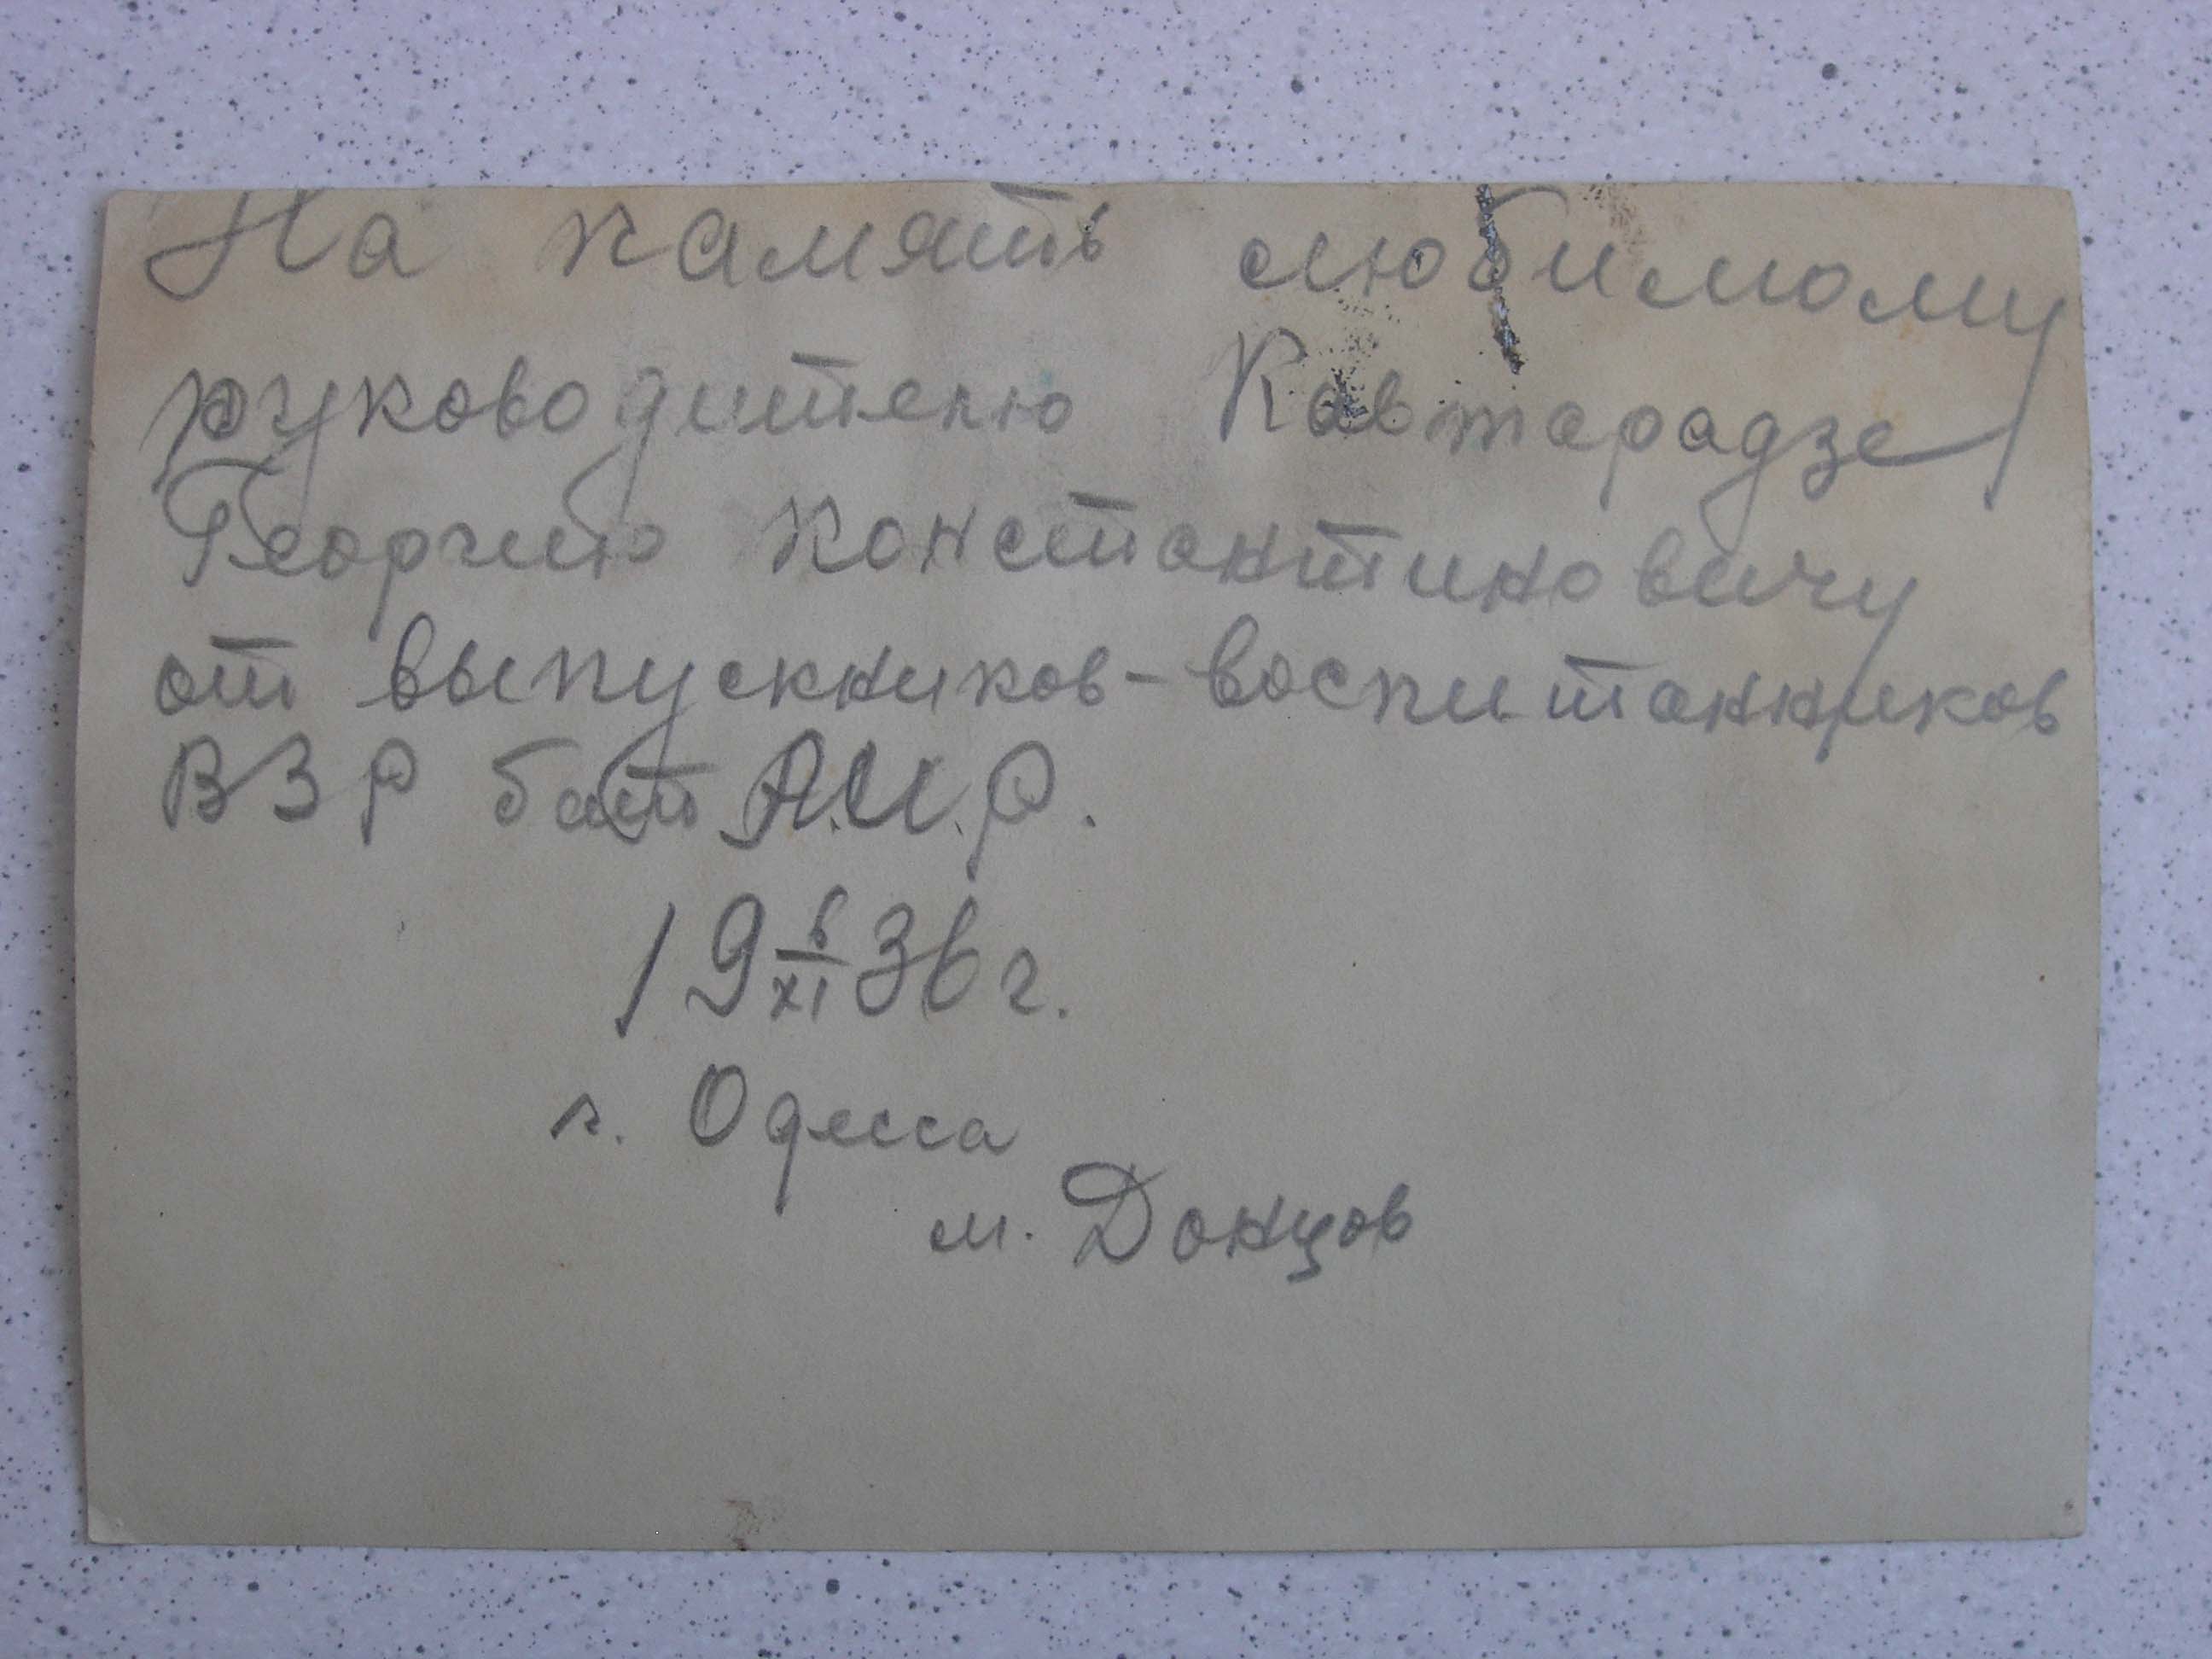 На память любимому
руководителю Кавтарадзе
Георгию Константиновичу
от выпускников-воспитанников
ВЗР бат А.И.Р.
19 6/XI 36 г.
г. Одесса
м. Донцов